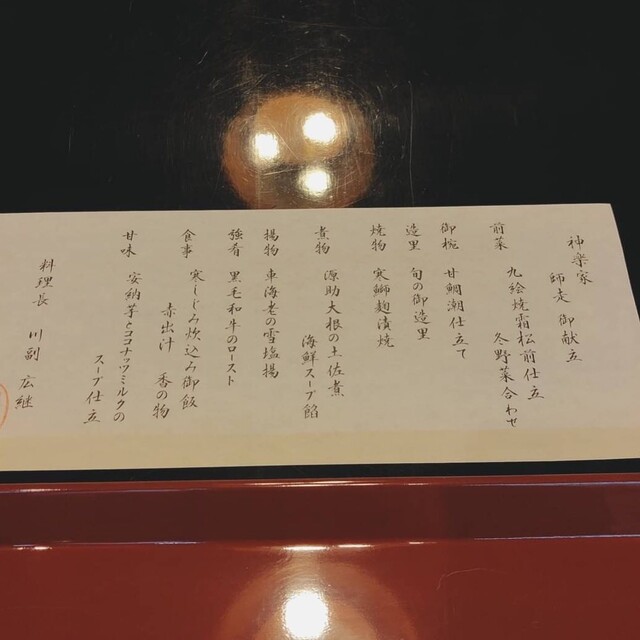 神楽家
師走 御献立
前菜 九絵焼霜松前仕立
冬野菜合わせ
御椀 甘鯛潮仕立て
造里 旬の御造里
焼物 寒鰤麹漬焼
煮物 源助大根の土佐煮
海鮮スープ餡
揚物 車海老の雪塩揚
強肴 黒毛和牛のロースト
食事 寒しじみ炊込み御飯
赤出汁 香の物
甘味 安納芋とココナッツミルクの
スープ仕立
料理長 川副 広継